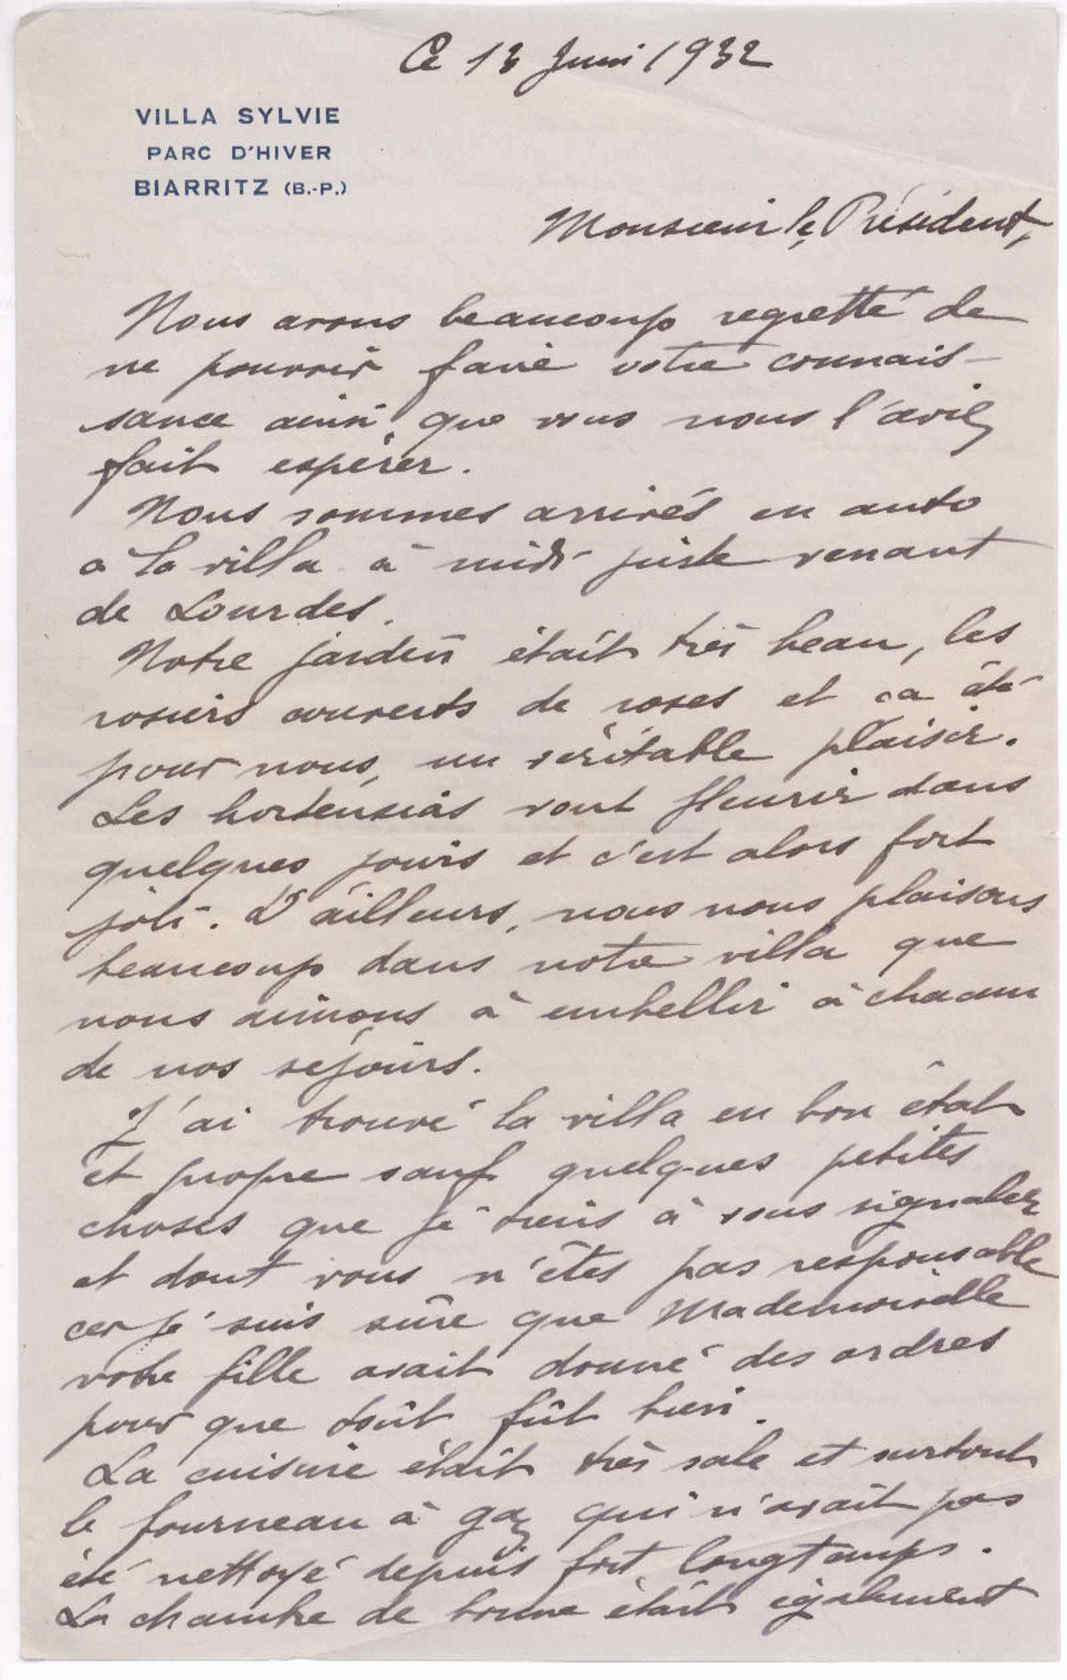 Ce 13 Juin 1932
VILLA SYLVIE
PARC D'HIVER
BIARRITZ (B.-P.)
Monsieur le Président,
Nous avons beaucoup regretté de
ne pouvoir faire votre connais-
sance ainsi que vous nous l'aviez
fait espérer.
Nous sommes arrivés en auto
a la villa à midi juste venant
de Lourdes.
Notre jardin était très beau, les
rosiers couverts de roses et ca été
pour nous, un véritable plaisir.
Les hortensias vont fleurir dans
quelques jours et c'est alors fort
joli. D'ailleurs, nous nous plaisons
beaucoup dans notre villa que
nous aimons à embellir à chacun
de nos séjours.
J'ai trouvé la villa en bon état
et propre sauf quelques petites
choses que je tiens à vous signaler
et dont vous n'êtes pas responsable
car je suis sûre que Mademoiselle
votre fille avait donné des ordres
pour que tout fût bien.
La cuisine était très sale et surtout
le fourneau à gaz qui n'avait pas
été nettoyé depuis fort longtemps.
La chambre de bonne était également